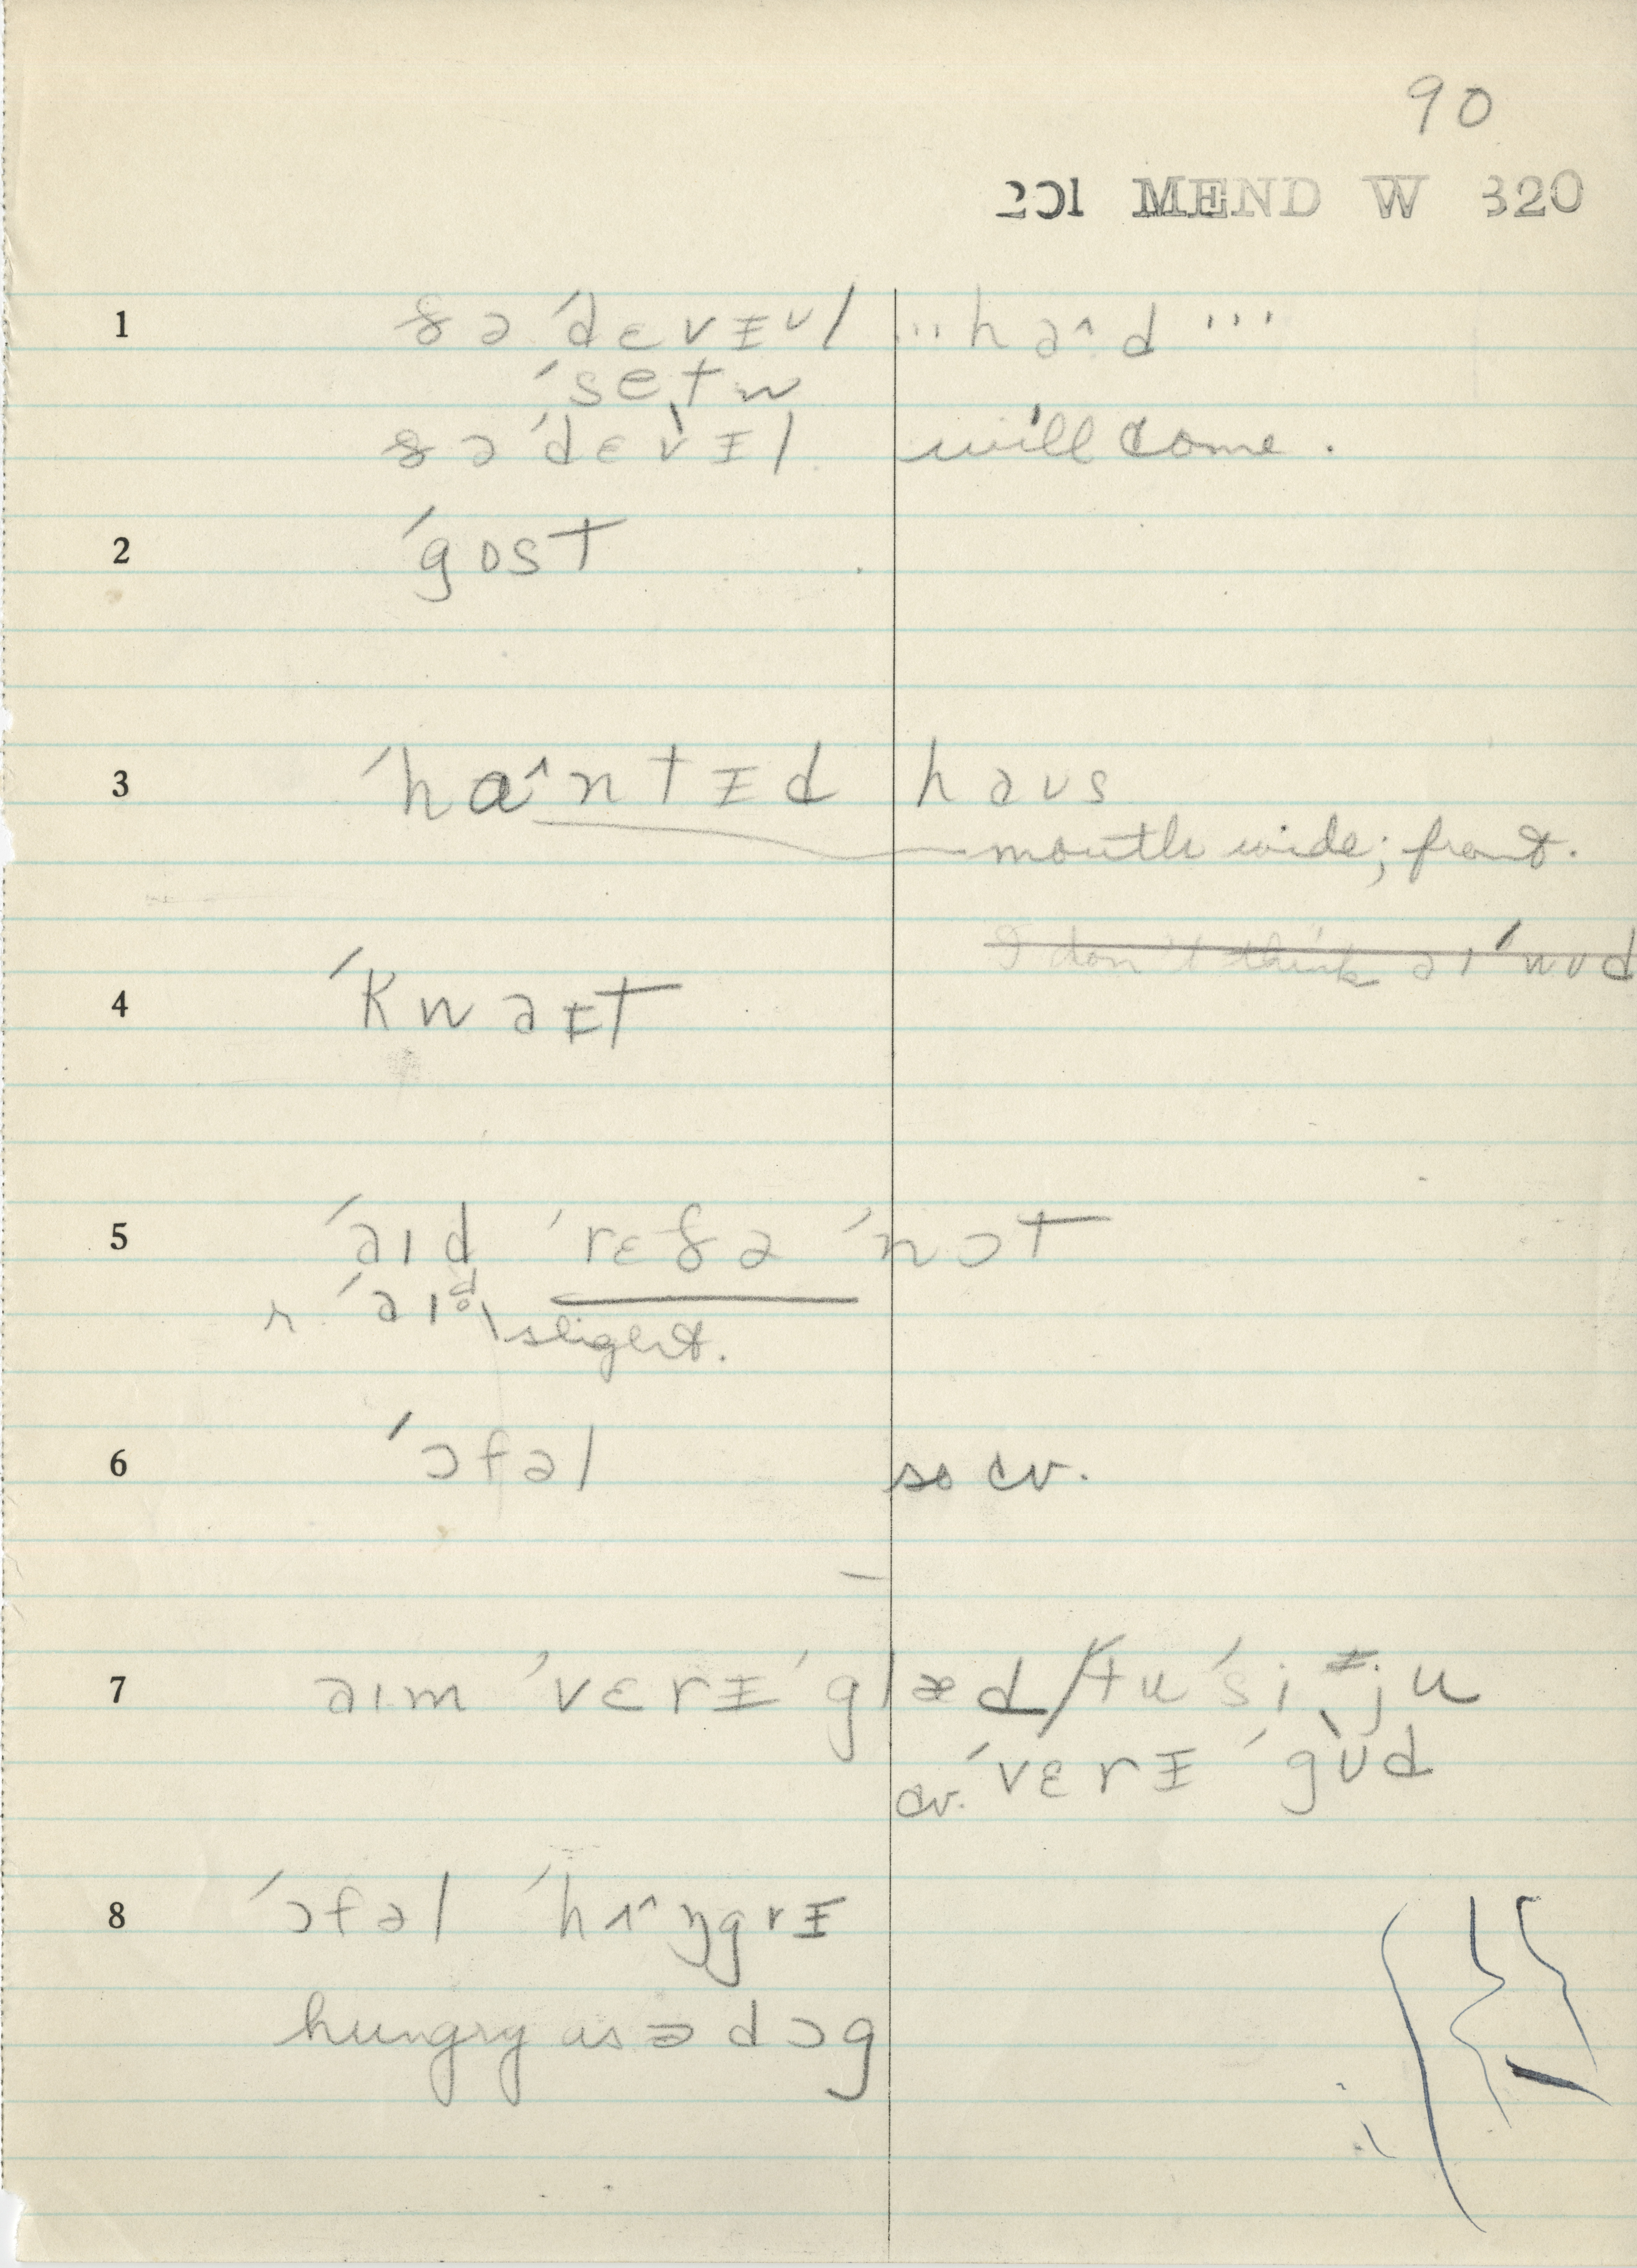 90
201 MEND W 320
1 ðə ˈdɛvᵻʋl ... haˆd ...
ˈsetn
ðə ˈdɛvᵻl will come.
2 ˈgost
3 ˈhɑˆntᵻd haʊs
mouth wide; front.
I don't think aɪ ˈwʊd
4 ˈkwaᵻt
5 ˈaɪd ˈrɛðə ˈnɔt
r. ˈaɪd slight.
6 ˈɔfəl so cv.
7 aɪm ˈvɛrᵻ ˈglæd/tu ˈsi ju
cv. ˈvɛrᵻ ˈgʊd
8 ˈɔfəl ˈhʌˆŋgrᵻ
hungry as ə dɔg